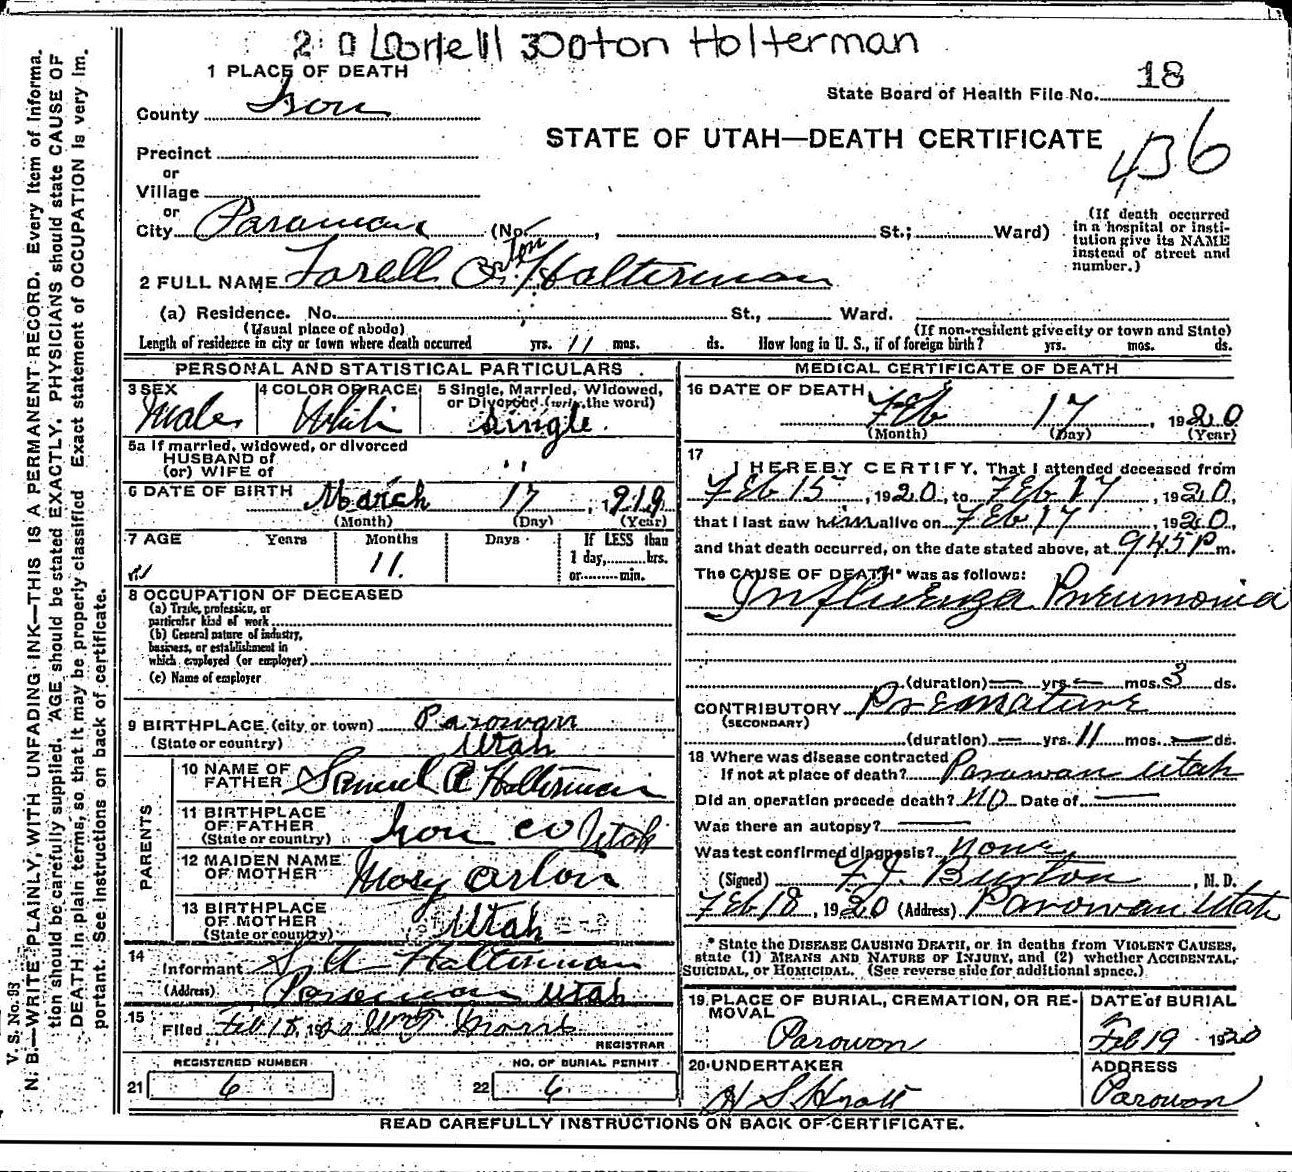 2 0 Lorell 30 Oton Holterman
1 PLACE OF DEATH
State Board of Health File No. 18
County Iron
STATE OF UTAH—DEATH CERTIFICATE
436
Precinct
or
Village
or
City Parowan (No. , St.; Ward)
(If death occurred in a hospital or institution give its NAME instead of street and number.)
2 FULL NAME Lorell Orton Halterman
(a) Residence. No. St., Ward.
(Usual place of abode) (If non-resident give city or town and State)
Length of residence in city or town where death occurred yrs. 11 mos. ds. How long in U. S., if of foreign birth? yrs. mos. ds.
PERSONAL AND STATISTICAL PARTICULARS
3 SEX Male
4 COLOR OR RACE White
5 Single, Married, Widowed, or Divorced (write the word) Single.
5a If married, widowed, or divorced
HUSBAND of
(or) WIFE of
6 DATE OF BIRTH March 17, 1919
(Month) (Day) (Year)
7 AGE Years Months Days If LESS than
11. 1 day, hrs.
or min.
8 OCCUPATION OF DECEASED
(a) Trade, profession, or
particular kind of work
(b) General nature of industry,
business, or establishment in
which employed (or employer)
(c) Name of employer
9 BIRTHPLACE (city or town) Parowan
(State or country) Utah
PARENTS
10 NAME OF FATHER Samuel A Halterman
11 BIRTHPLACE OF FATHER (State or country) Iron co Utah
12 MAIDEN NAME OF MOTHER Mary Orton
13 BIRTHPLACE OF MOTHER (State or country) Utah
14 Informant S A Halterman
(Address) Parowan Utah
15 Filed Feb 18, 1920 Wm Morris
REGISTRAR
REGISTERED NUMBER NO. OF BURIAL PERMIT
21 6 22 6
MEDICAL CERTIFICATE OF DEATH
16 DATE OF DEATH
Feb 17, 1920
(Month) (Day) (Year)
17 I HEREBY CERTIFY, That I attended deceased from
Feb 15, 1920, to Feb 17, 1920,
that I last saw him alive on Feb 17, 1920,
and that death occurred, on the date stated above, at 945 P m.
The CAUSE OF DEATH* was as follows:
Influenza Pneumonia
(duration) — yrs — mos. 3 ds.
CONTRIBUTORY Premature
(SECONDARY)
(duration) — yrs. 11 mos. — ds.
18 Where was disease contracted
If not at place of death? Parowan Utah
Did an operation precede death? NO Date of —
Was there an autopsy? —
Was test confirmed diagnosis? none
(Signed) F. J. Burton, M. D.
Feb 18, 1920 (Address) Parowan Utah
* State the DISEASE CAUSING DEATH, or in deaths from VIOLENT CAUSES,
state (1) MEANS AND NATURE OF INJURY, and (2) whether ACCIDENTAL,
SUICIDAL, or HOMICIDAL. (See reverse side for additional space.)
19 PLACE OF BURIAL, CREMATION, OR REMOVAL DATE of BURIAL
Parowan Feb 19 1920
20 UNDERTAKER ADDRESS
H S Hyatt Parowan
READ CAREFULLY INSTRUCTIONS ON BACK OF CERTIFICATE.
V. S. No. 93
N. B.—WRITE PLAINLY, WITH UNFADING INK—THIS IS A PERMANENT RECORD. Every item of informa-
tion should be carefully supplied. AGE should be stated EXACTLY. PHYSICIANS should state CAUSE OF
DEATH in plain terms, so that it may be properly classified. Exact statement of OCCUPATION is very im-
portant. See instructions on back of certificate.